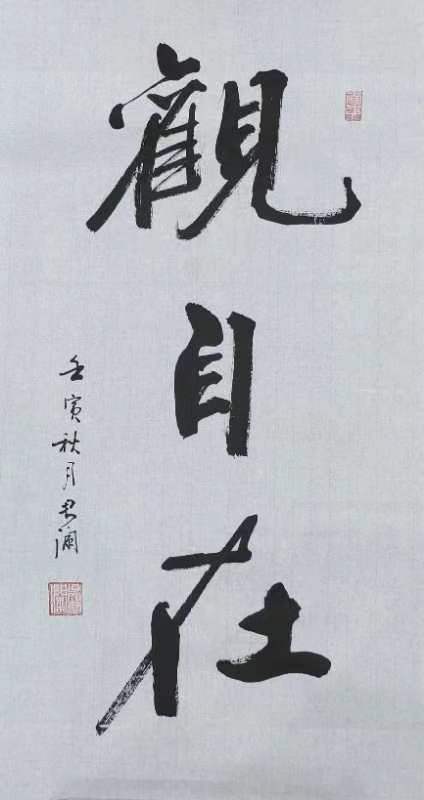 觀自在
壬寅秋月君瀾